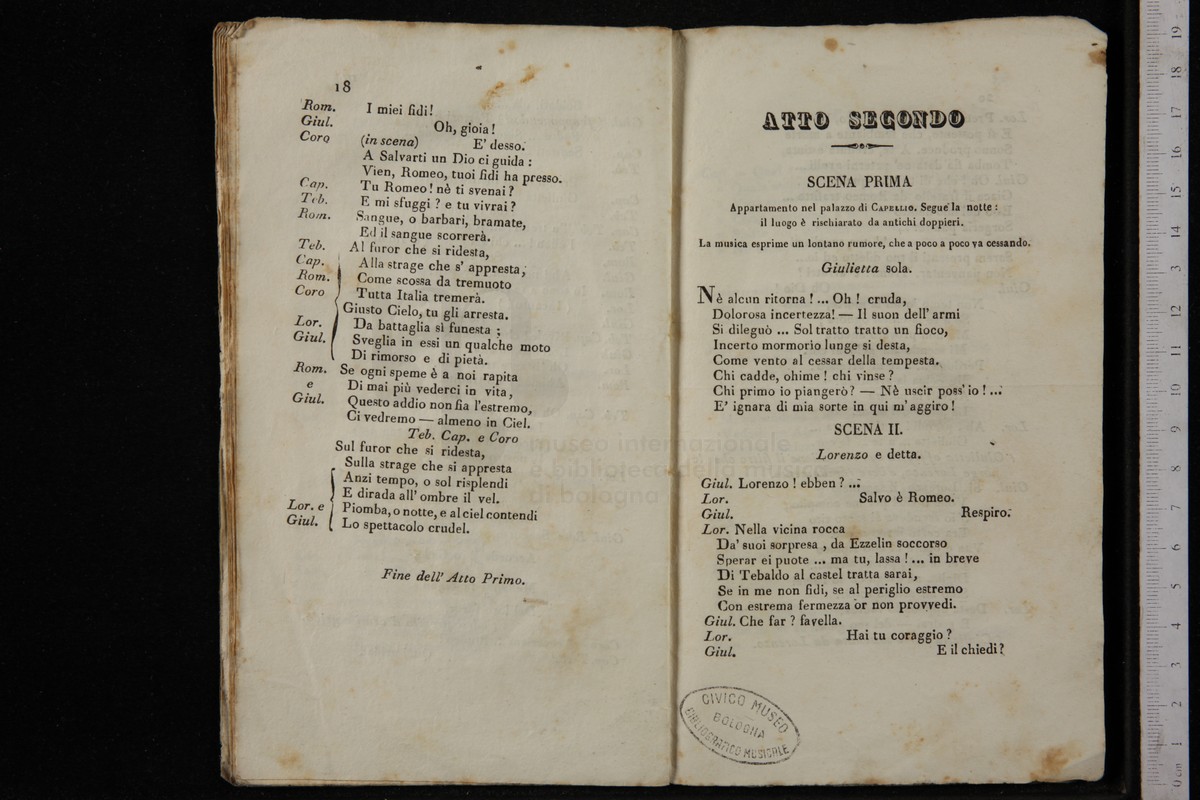 18
Rom. I miei fidi!
Giul. Oh, gioia!
Coro (in scena) E' desso.
A Salvarti un Dio ci guida :
Vien, Romeo, tuoi fidi ha presso.
Cap. Tu Romeo! nè ti svenai?
Teb. E mi sfuggi ? e tu vivrai?
Rom. Sangue, o barbari, bramate,
Ed il sangue scorrerà.
Teb. Al furor che si ridesta,
Cap. Alla strage che s' appresta,
Rom. Come scossa da tremuoto
Coro Tutta Italia tremerà.
Giusto Cielo, tu gli arresta.
Lor. Da battaglia sì funesta ;
Giul. Sveglia in essi un qualche moto
Di rimorso e di pietà.
Rom. Se ogni speme è a noi rapita
e Di mai più vederci in vita,
Giul. Questo addio non fia l'estremo,
Ci vedremo — almeno in Ciel.
Teb. Cap. e Coro
Sul furor che si ridesta,
Sulla strage che si appresta
Anzi tempo, o sol risplendi
E dirada all' ombre il vel.
Lor. e Piomba, o notte, e al ciel contendi
Giul. Lo spettacolo crudel.
Fine dell' Atto Primo.
ATTO SECONDO
SCENA PRIMA
Appartamento nel palazzo di CAPELLIO. Segue la notte :
il luogo è rischiarato da antichi doppieri.
La musica esprime un lontano rumore, che a poco a poco va cessando.
Giulietta sola.
Nè alcun ritorna ! ... Oh ! cruda,
Dolorosa incertezza! — Il suon dell' armi
Si dileguò ... Sol tratto tratto un fioco,
Incerto mormorìo lunge si desta,
Come vento al cessar della tempesta.
Chi cadde, ohime ! chi vinse ?
Chi primo io piangerò? — Nè uscir poss' io ! ...
E' ignara di mia sorte in qui m' aggiro !
SCENA II.
Lorenzo e detta.
Giul. Lorenzo ! ebben ? ...
Lor. Salvo è Romeo.
Giul. Respiro.
Lor. Nella vicina rocca
Da' suoi sorpresa , da Ezzelin soccorso
Sperar ei puote ... ma tu, lassa ! ... in breve
Di Tebaldo al castel tratta sarai,
Se in me non fidi, se al periglio estremo
Con estrema fermezza or non provvedi.
Giul. Che far ? favella.
Lor. Hai tu coraggio ?
Giul. E il chiedi?
CIVICO MUSEO
BOLOGNA
BIBLIOGRAFICO MUSICALE
museo internazionale
e biblioteca della musica
di bologna
0 cm 1 2 3 4 5 6 7 8 9 10 11 12 13 14 15 16 17 18 19